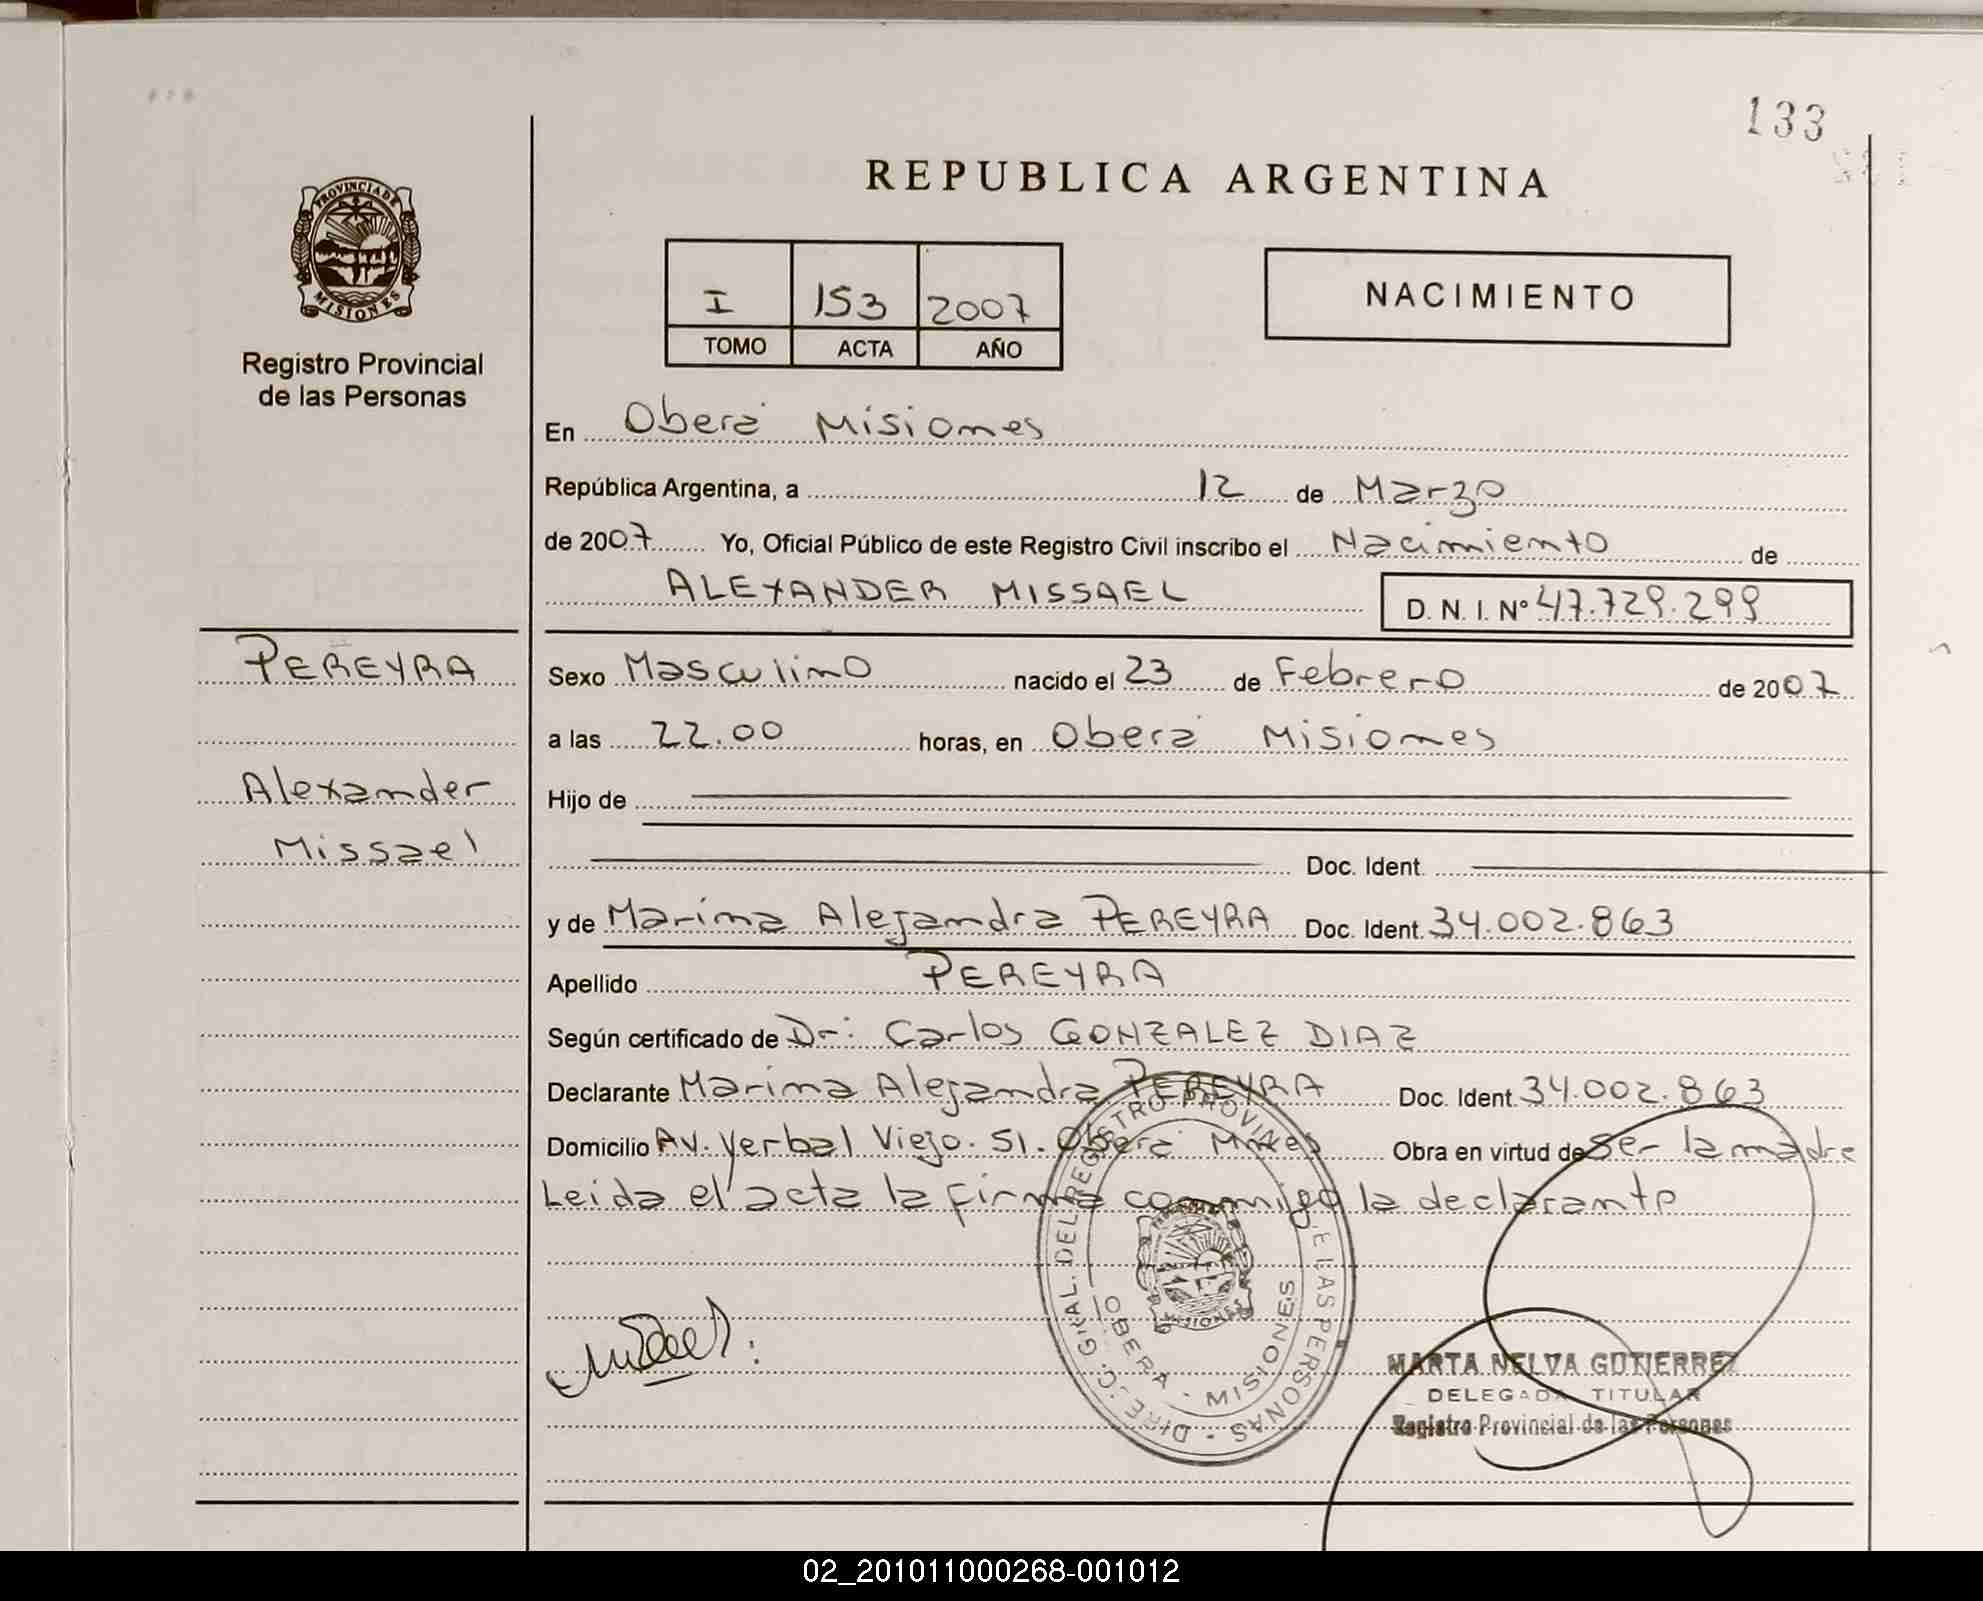 133
PROVINCIA DE
MISIONES
Registro Provincial
de las Personas
REPUBLICA ARGENTINA
I 153 2007
TOMO ACTA AÑO
NACIMIENTO
En Oberá Misiones
República Argentina, a 12 de Marzo
de 2007 Yo, Oficial Público de este Registro Civil inscribo el Nacimiento de
ALEXANDER MISSAEL D. N. I. Nº 47.729.299
PEREYRA
Alexander
Missael
Sexo Masculino nacido el 23 de Febrero de 2007
a las 22.00 horas, en Oberá Misiones
Hijo de
Doc. Ident.
y de Marina Alejandra PEREYRA Doc. Ident. 34.002.863
Apellido PEREYRA
Según certificado de Dr: Carlos GONZALEZ DIAZ
Declarante Marina Alejandra PEREYRA Doc. Ident. 34.002.863
Domicilio Av. Yerbal Viejo. Oberá Mnes Obra en virtud de Ser la madre
Leida el acta la firma conmigo la declarante
DIREC. GRAL. DEL REGISTRO PROVINC. DE LAS PERSONAS
OBERA - MISIONES
MISIONES
MARTA NELVA GUTIERREZ
DELEGADA TITULAR
Registro Provincial de las Personas
02_201011000268-001012